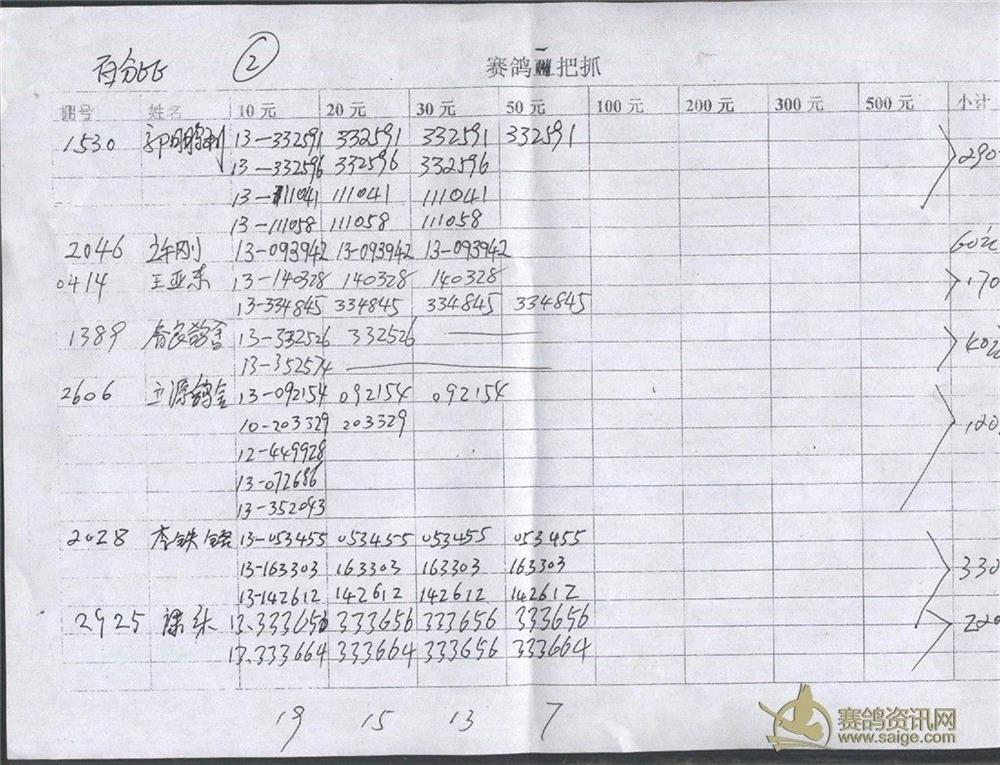 百分比 ② 赛鸽一把抓
棚号 姓名 10元 20元 30元 50元 100元 200元 300元 500元 小计
1530 郭鹏 13-332591 332591 332591 332591
13-332596 332596 332596 290
13-111041 111041 111041
13-111058 111058 111058
2046 许刚 13-093942 13-093942 13-093942 60元
0414 王亚东 13-140328 140328 140328 170
13-334845 334845 334845 334845
1389 春良鸽舍 13-332526 332526 40元
13-352574
2606 立源鸽舍 13-092154 092154 092154
10-203329 203329 120
12-449928
13-072686
13-352043
2028 李铁 13-053455 053455 053455 053455
13-163303 163303 163303 163303 330
13-142612 142612 142612 142612
2925 13.333656 333656 333656 333656 220
13.333664 333664 333656 333664
19 15 13 7
赛鸽资讯网
www.saige.com